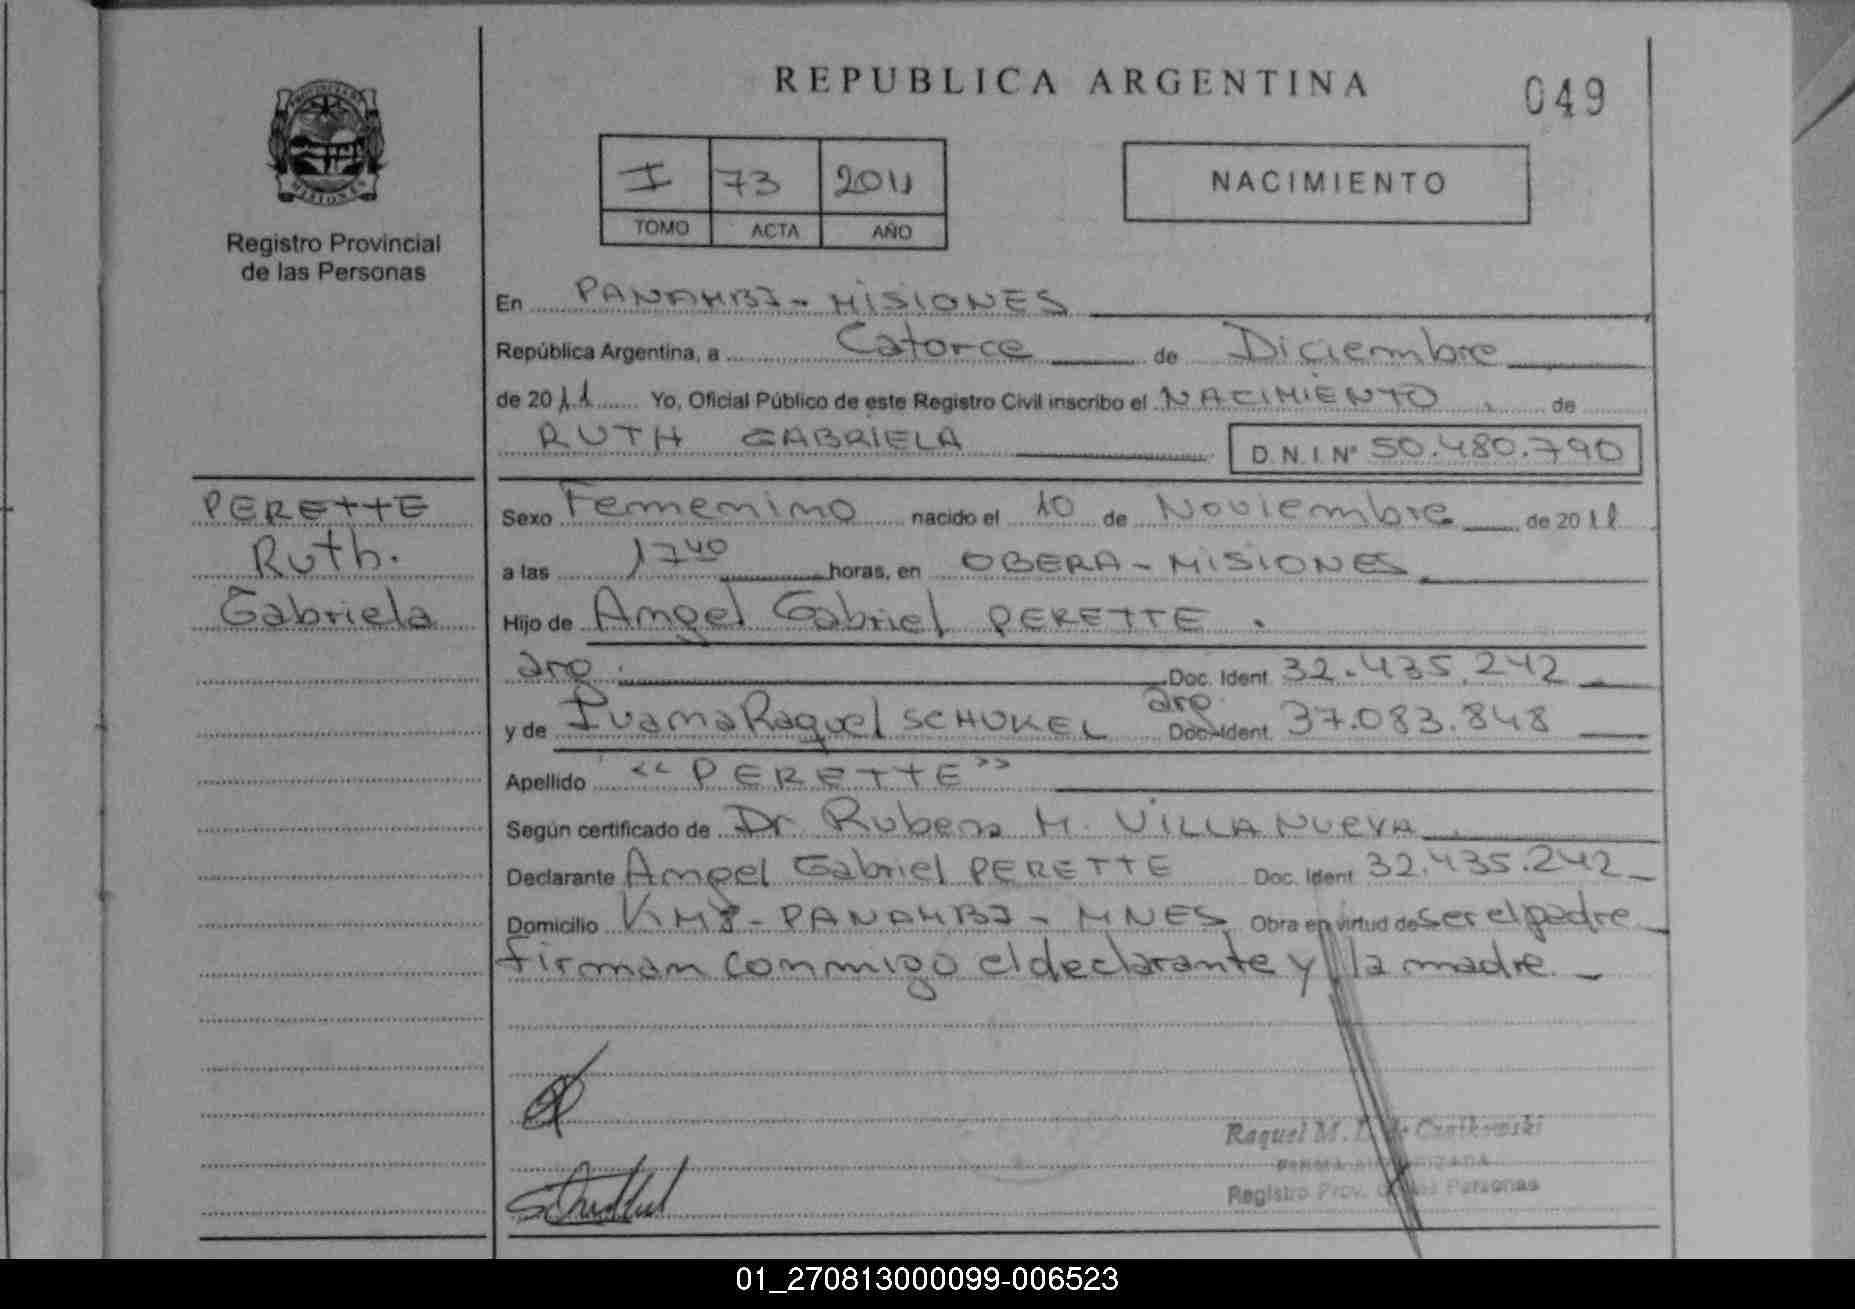 REPUBLICA ARGENTINA
049
I 73 2011
TOMO ACTA AÑO
NACIMIENTO
Registro Provincial
de las Personas
En PANAMBI - MISIONES
República Argentina, a Catorce de Diciembre
de 2011 Yo, Oficial Público de este Registro Civil inscribo el NACIMIENTO de
RUTH GABRIELA D.N.I. Nº 50.480.790
PERETTE
Ruth.
Gabriela
Sexo Femenino nacido el 10 de Noviembre de 2011
a las 17 40 horas, en OBERA - MISIONES
Hijo de Angel Gabriel PERETTE.
arg. Doc. Ident. 32.435.242
y de Ivana Raquel SCHUKEL arg. Doc. Ident. 37.083.848
Apellido "PERETTE"
Según certificado de Dr. Ruben M. VILLANUEVA
Declarante Angel Gabriel PERETTE Doc. Ident. 32.435.242
Domicilio KM 8 - PANAMBI - MNES Obra en virtud de ser el padre
firman conmigo el declarante y la madre.
Raquel M.
Registro Prov. de las Personas
01_270813000099-006523